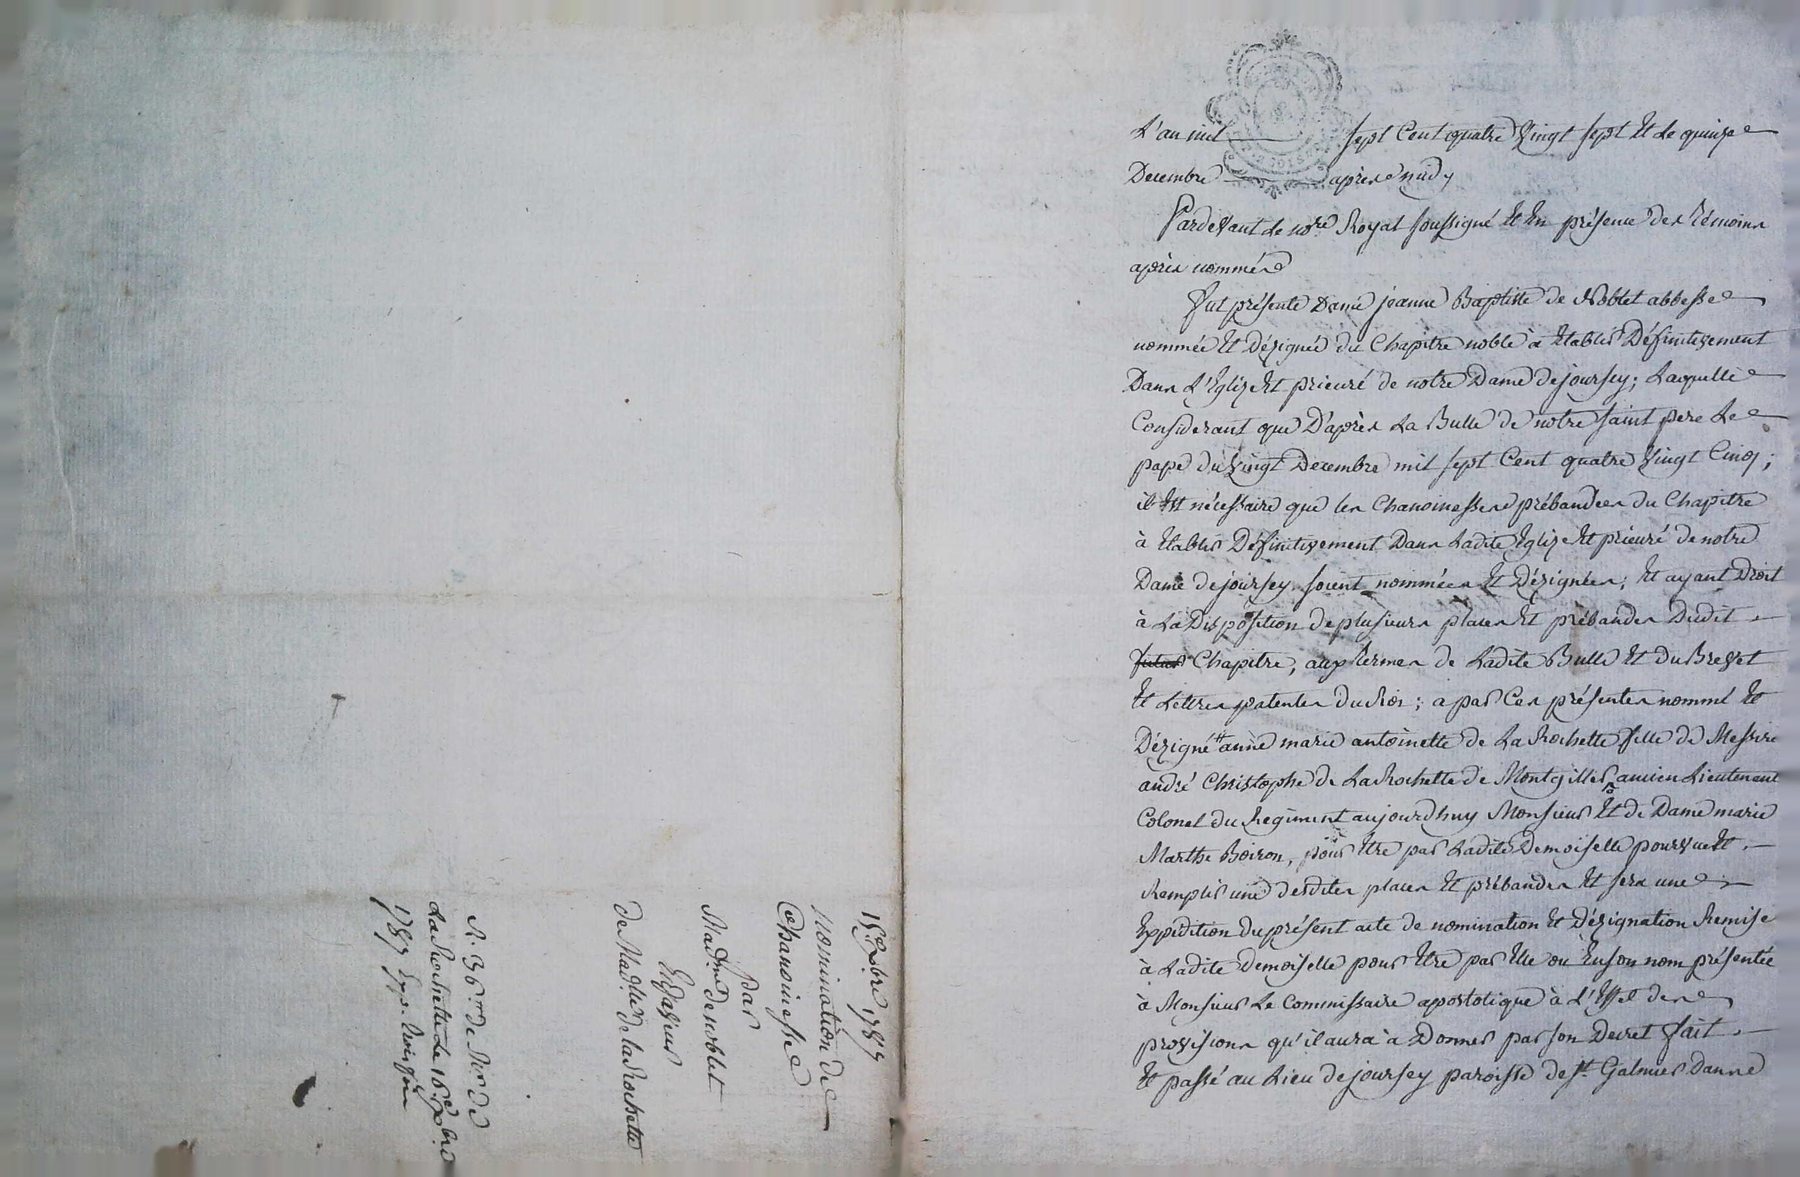 L'an mil sept Cent quatre Vingt sept Et Le quinze
Decembre après midy
Pardevant Le nore Royal soussigné Et En présence des Témoins
après nommés
Fut présente Dame jeanne Baptiste de Noblet abbesse
nommée Et Dézignée du Chapitre noble à Etablir Définitivement
Dans L'Eglize Et prieuré de notre Dame de joursey; Laquelle
Considerant que D'après La Bulle de notre saint pere Le
pape du Vingt Decembre mil sept Cent quatre Vingt Cinq;
il Est nécessaire que les Chanoinesses prébandées du Chapitre
à Etablir Définitivement Dans Ladite Eglize Et prieuré de notre
Dame de joursey, soient nommées Et Dézignées; Et ayant Droit
à La Disposition de plusieurs places Et prébandes Dudit
futur Chapitre, aux termes de Ladite Bulle Et du Brevet
Et Lettres patentes du Roi; a par Ces présentes nommé Et
Dézigné anne marie antoinette de La Rochette fille de Messire
andré Christophe de La Rochette de Montgillier, ancien Lieutenant
Colonel du Régiment aujourdhuy Monsieur Et de Dame marie
Marthe Boiron, pour Etre par Ladite Demoiselle pourvue Et
Remplir une desdites places Et prébandes Et sera une
Expédition du présent acte de nomination Et Dézignation Remise
à Ladite Demoiselle pour Etre par Elle ou En son nom présentée
à Monsieur Le Commissaire apostolique à L'Effet des
provisions qu'il aura à Donner par son Decret fait
Et passé au Lieu de joursey paroisse de St Galmier Danne
15 Xbre 1787
Nomination de
Chanoinesse
Par
Madme de noblet
En faveur
de Madlle de la Rochette
La Rochette Le 16 Xbre
1787